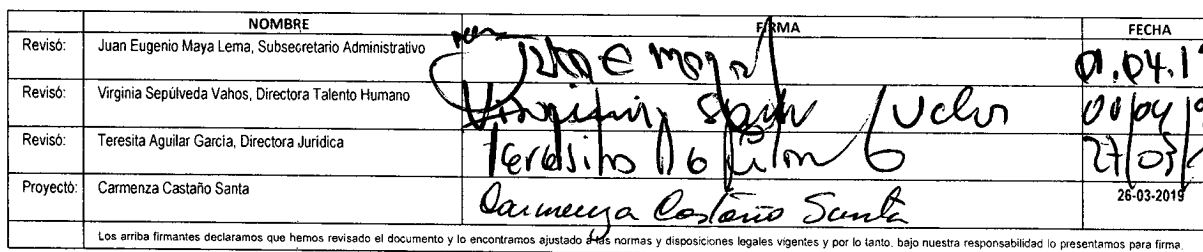 NOMBRE FIRMA FECHA
Revisó: Juan Eugenio Maya Lema, Subsecretario Administrativo 01.04.1
Revisó: Virginia Sepúlveda Vahos, Directora Talento Humano
Revisó: Teresita Aguilar García, Directora Jurídica 27/03/
Proyectó: Carmenza Castaño Santa Carmenza Castaño Santa 26-03-2019
Los arriba firmantes declaramos que hemos revisado el documento y lo encontramos ajustado a las normas y disposiciones legales vigentes y por lo tanto, bajo nuestra responsabilidad lo presentamos para firma.